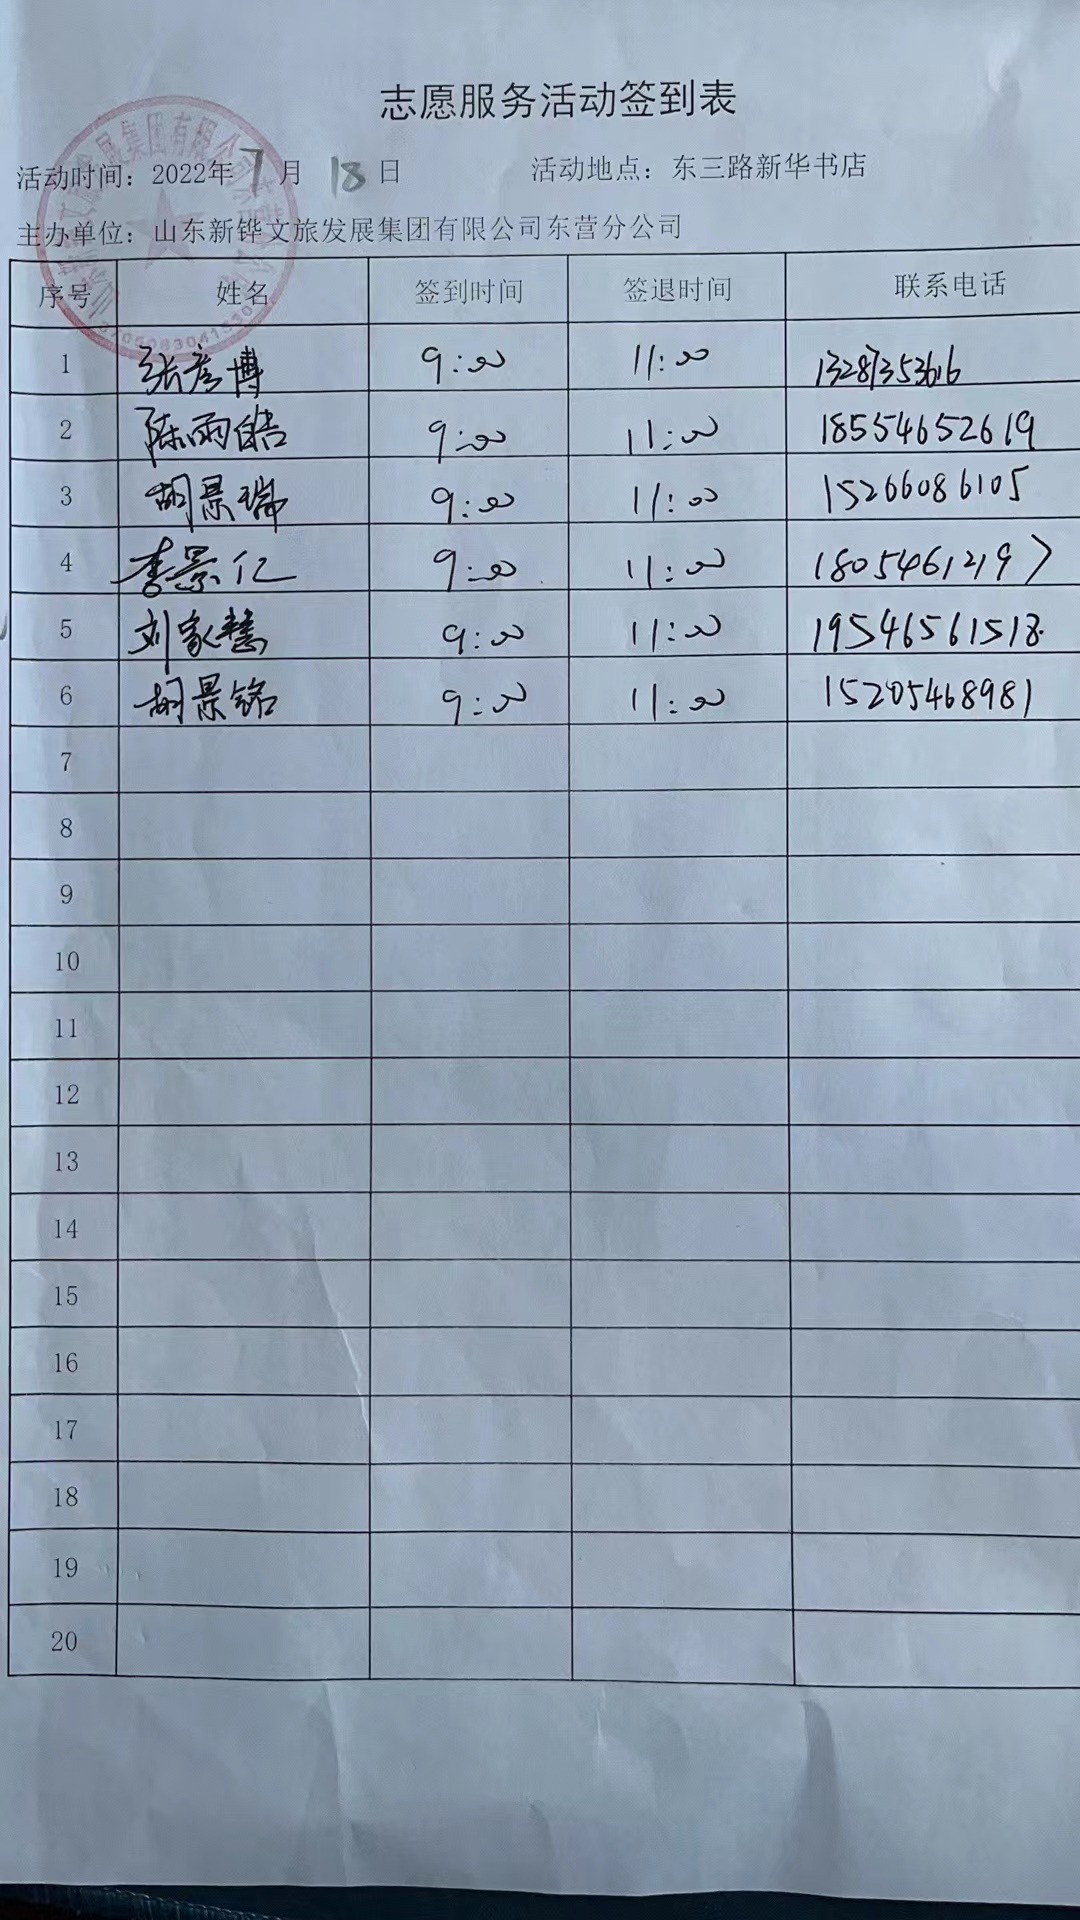 志愿服务活动签到表
活动时间：2022年7月18日 活动地点：东三路新华书店
主办单位：山东新铧文旅发展集团有限公司东营分公司
序号 姓名 签到时间 签退时间 联系电话
1 张彦博 9:00 11:00 13287353616
2 陈雨皓 9:00 11:00 18554652619
3 胡景瑞 9:00 11:00 15266086105
4 李景仁 9:00 11:00 18054612197
5 刘家慧 9:00 11:00 19546561518
6 胡景铭 9:00 11:00 15205468981
7
8
9
10
11
12
13
14
15
16
17
18
19
20